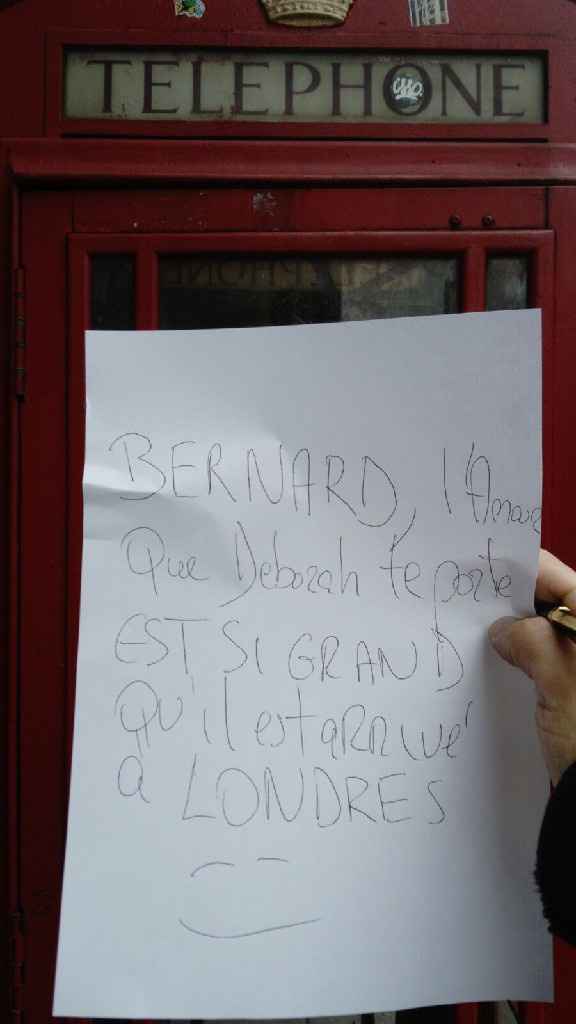 TELEPHONE
BERNARD, l'Amour
Que Deborah te porte
EST SI GRAND
QU'il est ARRIVé
à LONDRES